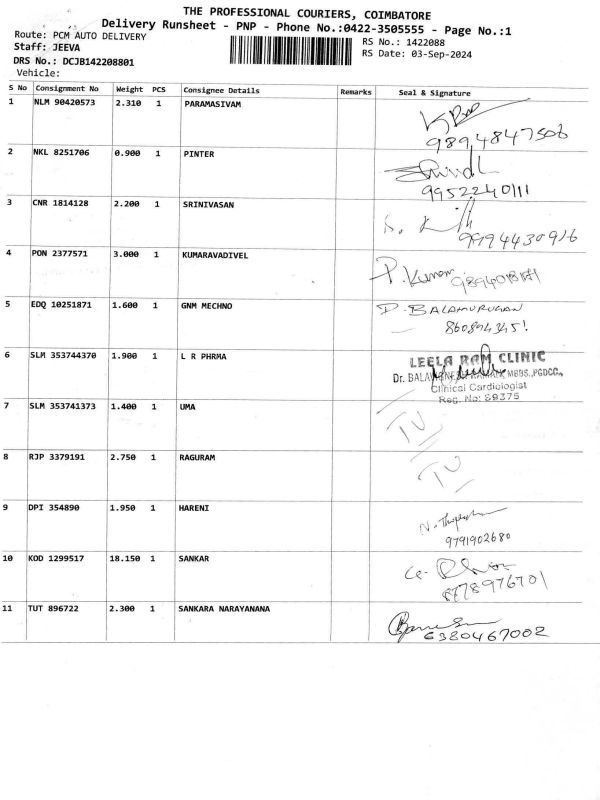 THE PROFESSIONAL COURIERS, COIMBATORE
Delivery Runsheet - PNP - Phone No.:0422-3505555 - Page No.:1
Route: PCM AUTO DELIVERY RS No.: 1422088
Staff: JEEVA RS Date: 03-Sep-2024
DRS No.: DCJB142208801
Vehicle:
S No Consignment No Weight PCS Consignee Details Remarks Seal & Signature
1 NLM 90420573 2.310 1 PARAMASIVAM
9894847506
2 NKL 8251706 0.900 1 PINTER
9952240111
3 CNR 1814128 2.200 1 SRINIVASAN
9994430916
4 PON 2377571 3.000 1 KUMARAVADIVEL P. Kumar
5 EDQ 10251871 1.600 1 GNM MECHNO D. BALAMURUGAN
6 SLM 353744370 1.900 1 L R PHRMA LEELA RAM CLINIC
Dr. MBBS.,PGDCC.,
Clinical Cardiologist
Reg. No: 89375
7 SLM 353741373 1.400 1 UMA
8 RJP 3379191 2.750 1 RAGURAM
9 DPI 354890 1.950 1 HARENI
9791902680
10 KOD 1299517 18.150 1 SANKAR
8778976701
11 TUT 896722 2.300 1 SANKARA NARAYANANA
6380467002